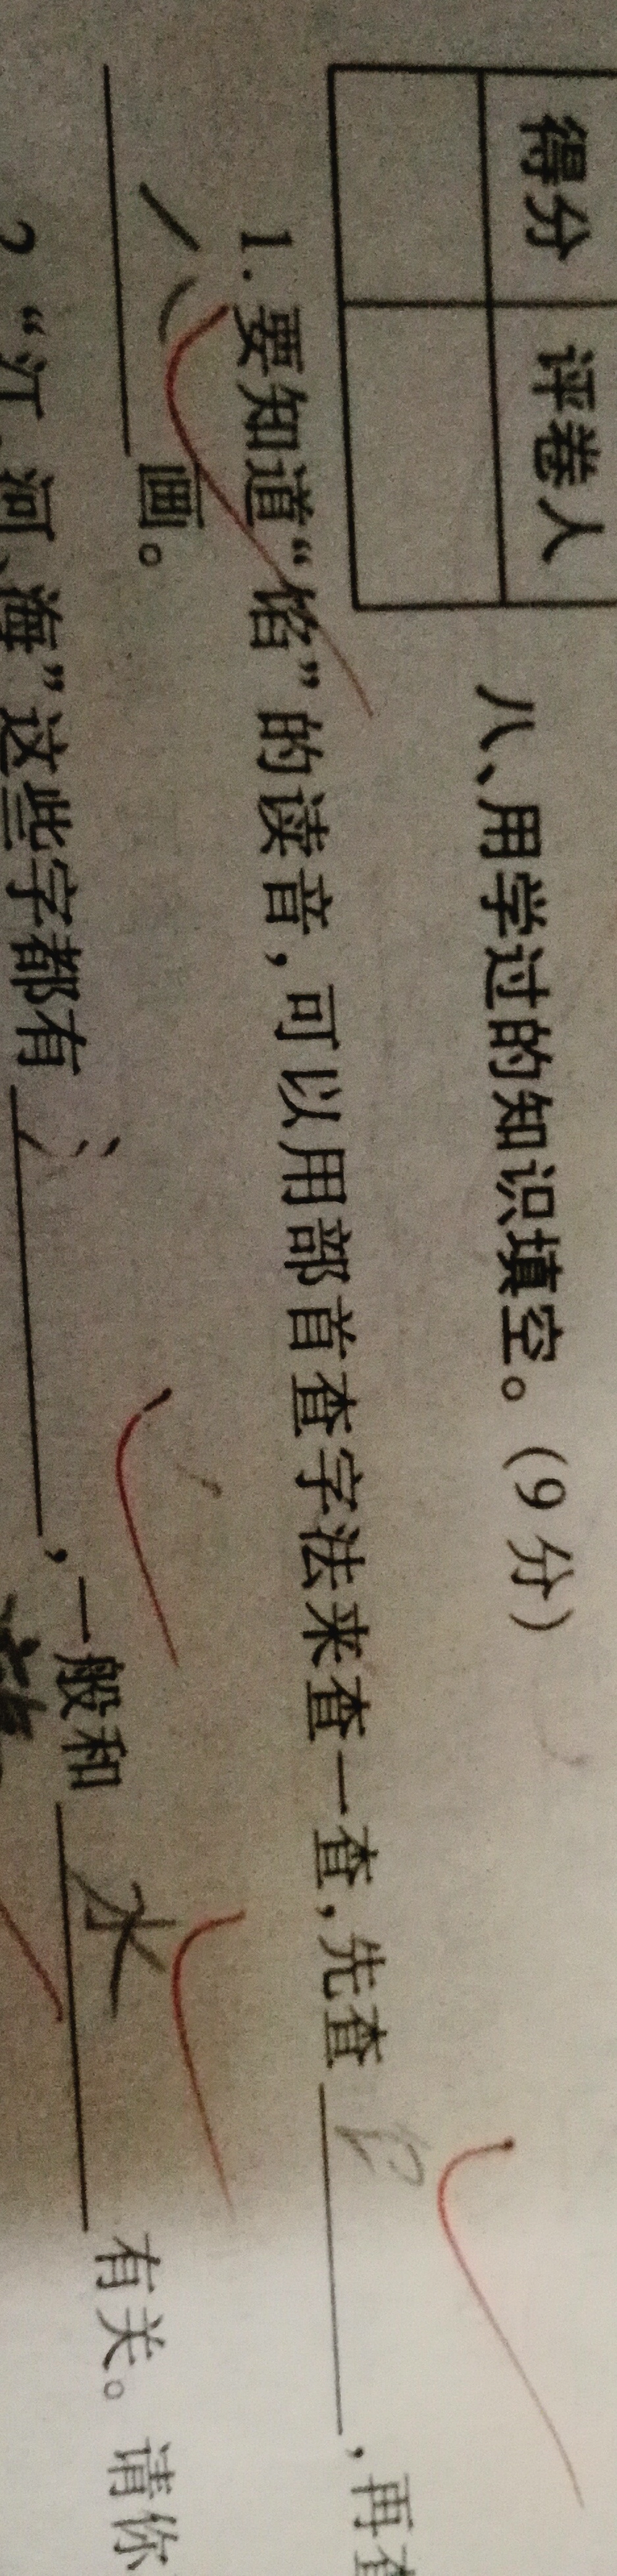 得分 评卷人
八、用学过的知识填空。(9分)
1.要知道“馅”的读音,可以用部首查字法来查一查,先查饣,再查
八画。
2.“江、河、海”这些字都有氵,一般和水有关。请你